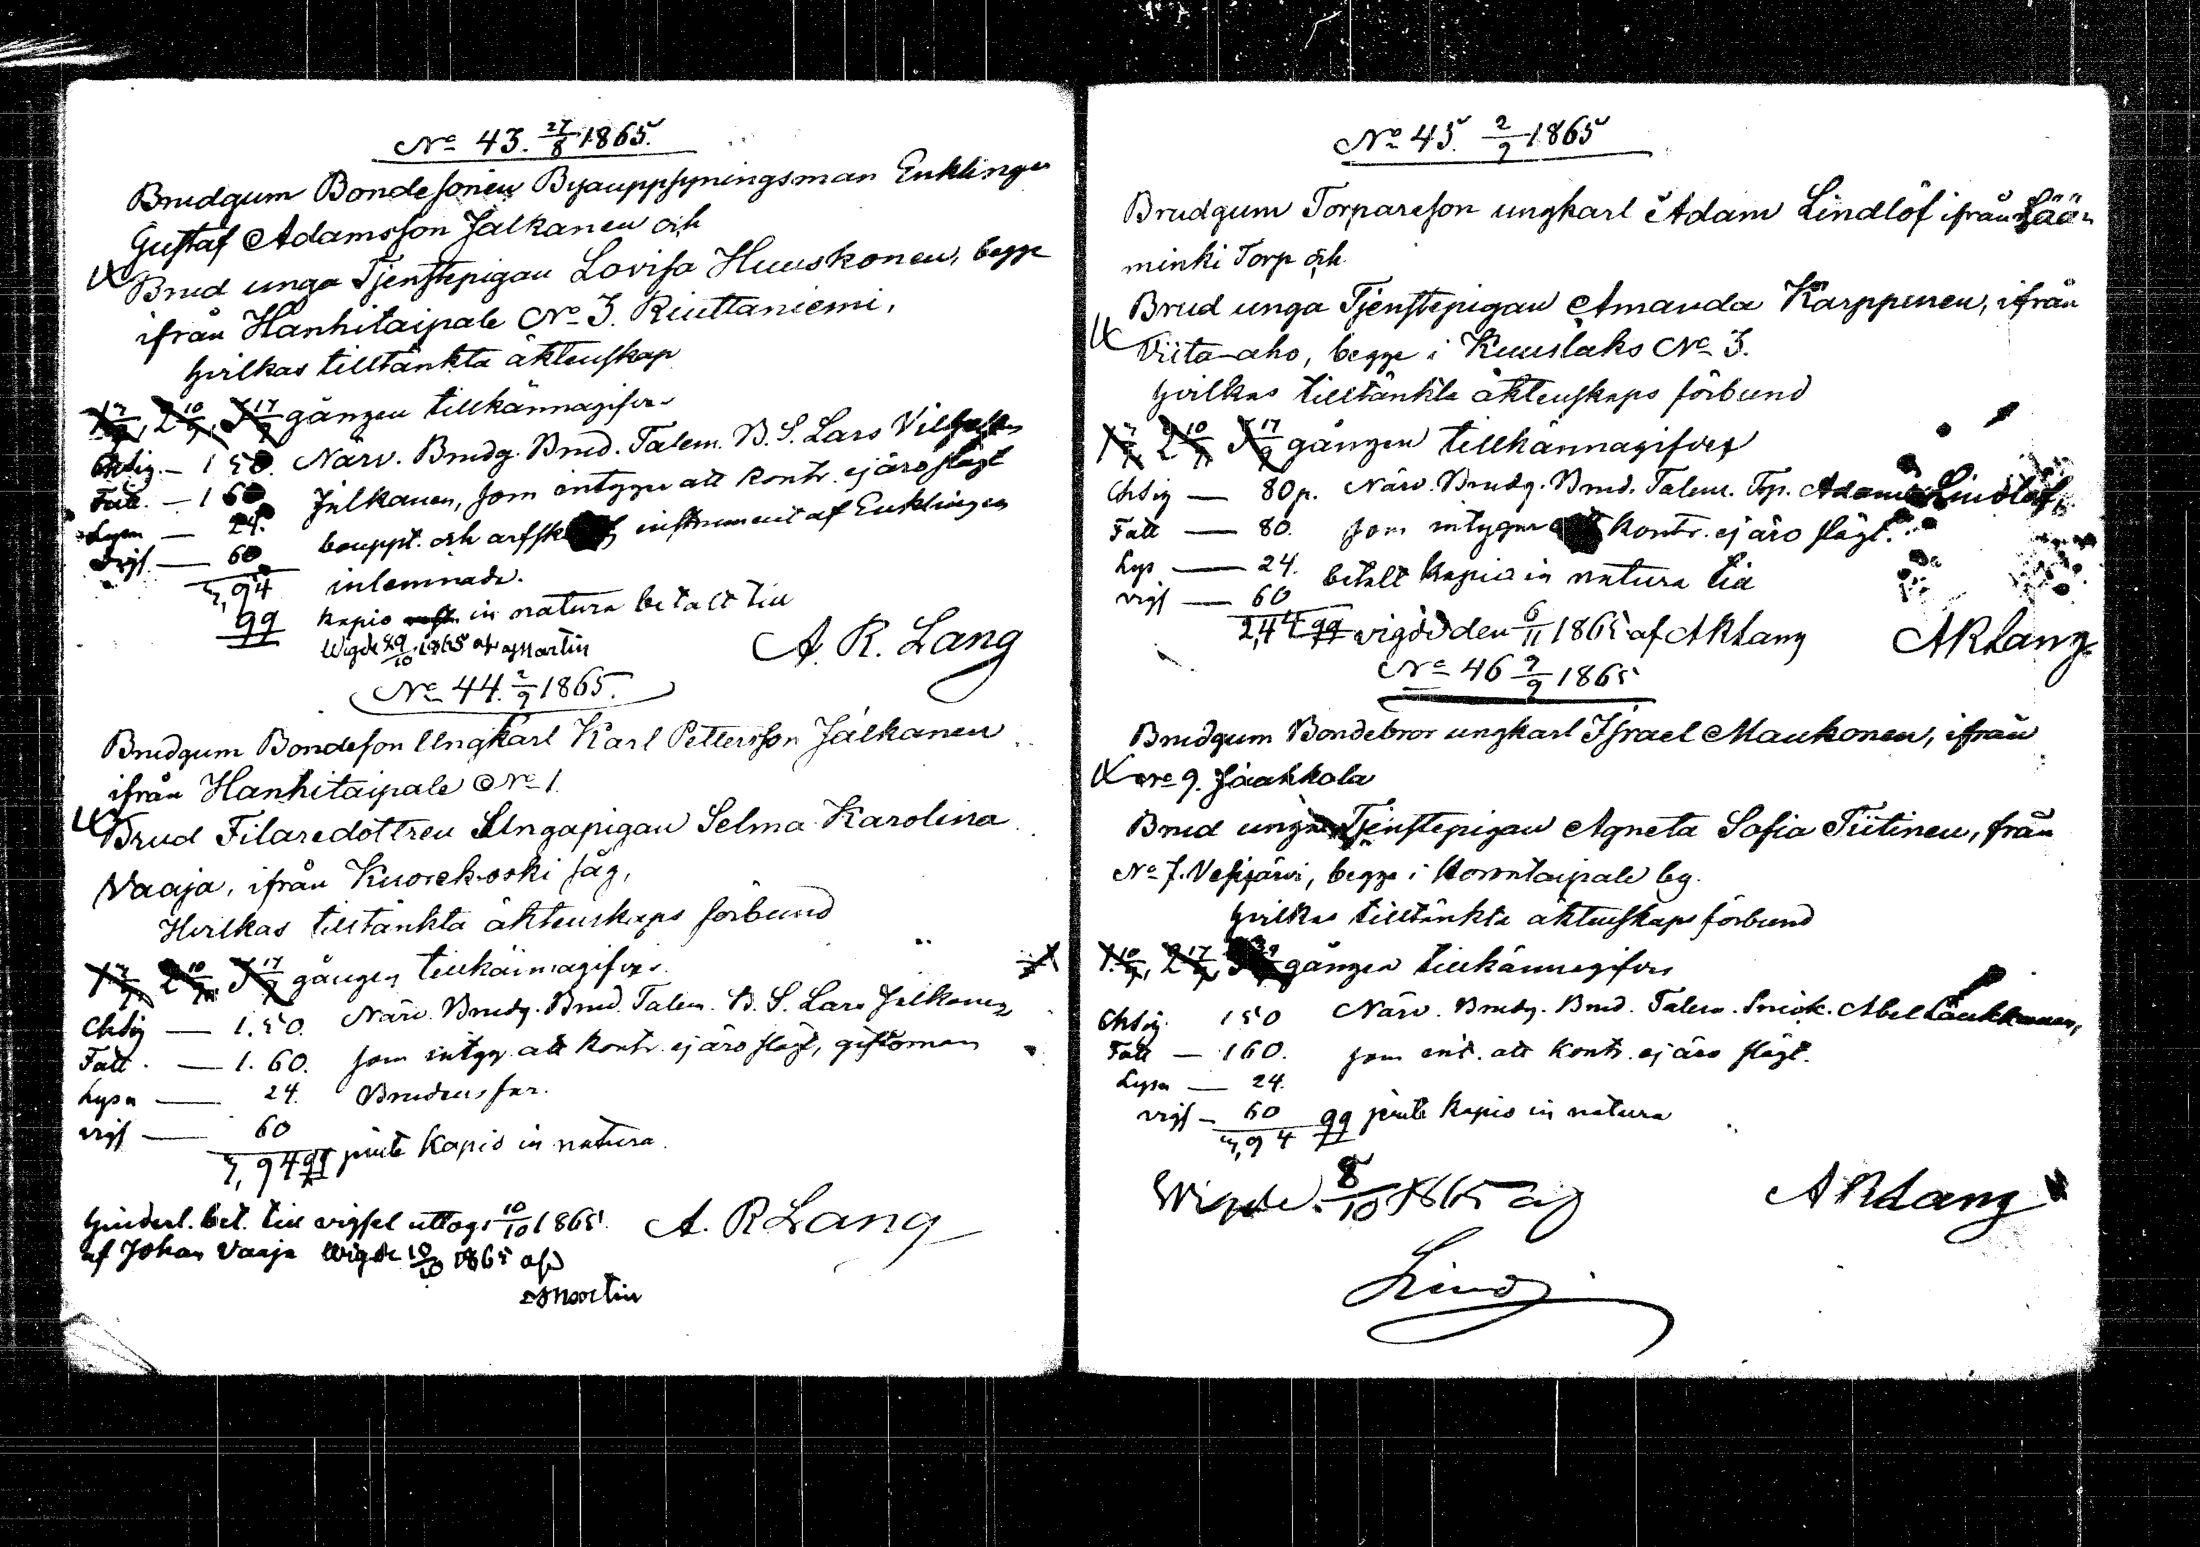 No 43. 27/8 1865.
Brudgum Bondesonen Byauppsyningsman Enklingen
Gustaf Adamsson Jälkanen och
Brud unga Tjenstepigan Lovisa Huuskonen, begge
ifrån Hanhitaipale No 3. Riuttaniemi,
hvilkas tilltänkta äktenskap
1 3/9, 2 10/9, 3 17/9 gången tillkännagifves
Chtig. — 1 50. Närv. Brudg. Brud. Talem. B. S. Lars
Fatt. — 1 60 Jälkanen, som intygar att kontr. ej äro slägt
Lysn — 24. bouppt. och instrument af Enklingen
vigs. — 60 inlemnade.
3,94
99 kapio in natura betalt till
Wigde 29/10 1865 af Martin A. R. Lang
No 44. 2/9 1865.
Brudgum Bondeson Ungkarl Karl Pettersson Jälkanen
ifrån Hanhitaipale No 1.
Brud Filaredottren Ungapigan Selma Karolina
Vaaja, ifrån Kuorekoski såg,
Hvilkas tilltänkta äktenskaps förbund
1 3/9, 2 10/9, 3 17/9 gången tillkännagifves
Chtig — 1.50. Närv. Brudg. Brud. Talem. B. S. Lars Jälkanen
Fatt. — 1.60. som intyg. att kontr. ej äro slägt, giftoman
Lysn — 24. Brudens far.
vigs — 60
3,94 99 pinte kapio in natura
hinderl. bet. till vigsel uttogs 10/10 1865. A. R Lang
af Johan Vaaja Wigde 10/10 1865 af
Martin
No 45. 2/9 1865
Brudgum Torpareson ungkarl Adam Lindlöf ifrån Sään
minki Torp och
Brud unga Tjenstepigan Amanda Kärppinen, ifrån
Viita-aho, begge i Kuuslaks No 3.
hvilkas tilltänkta äktenskaps förbund
1 3/9 2 10/9 3 17/9 gången tillkännagifves
Chtig — 80 p. Närv. Brudg. Brud. Talem. Tp. Adam Lindlöf,
Fatt — 80. som intygar kontr. ej äro slägt.
Lys — 24. betalt kapio in natura till
vigs — 60
2,44 99 vigde den 6/11 1865 af ARLang ARLang
No 46 2/9 1865
Brudgum Bondebror ungkarl Israel Maukonen, ifrån
No 9. Jäahkola
Brud unga Tjenstepigan Agneta Sofia Tiitinen, från
No 7. Vesijärvi, begge i Konntaipale by.
hvilkas tilltänkta äktenskaps förbund
1. 10/9, 2 17/9, 3 gången tillkännagifves
Chtig. 150 Närv. Brudg. Brud. Talem. Abel
Fatt — 160. som int. att kontr. ej äro slägt.
Lysn — 24.
vigs — 60 99 pinte kapio in natura
3,94
Wigde. 8/10 1865 af ARLang
Lind